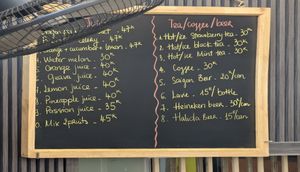 Juice
celery - 47k
Orange + cucumber + lemon - 47k
4. Water melon - 30k
Orange juice - 40k
Guava juice - 40k
7. Lemon juice - 40k
8. Pineapple juice - 40k
9. Passion juice - 35k
Mix 2 fruits - 45k
Tea/coffee/beer
1. Hot/ice Strawberry tea - 30k
2. Hot/ice black tea - 30k
3. Hot/ice Mint tea - 30k
4. Coffee - 30k
5. Saigon Beer - 20k/can
6. Larue - 15k/bottle
7. Heineken beer - 30k/can
8. Halida Beer - 15k/can